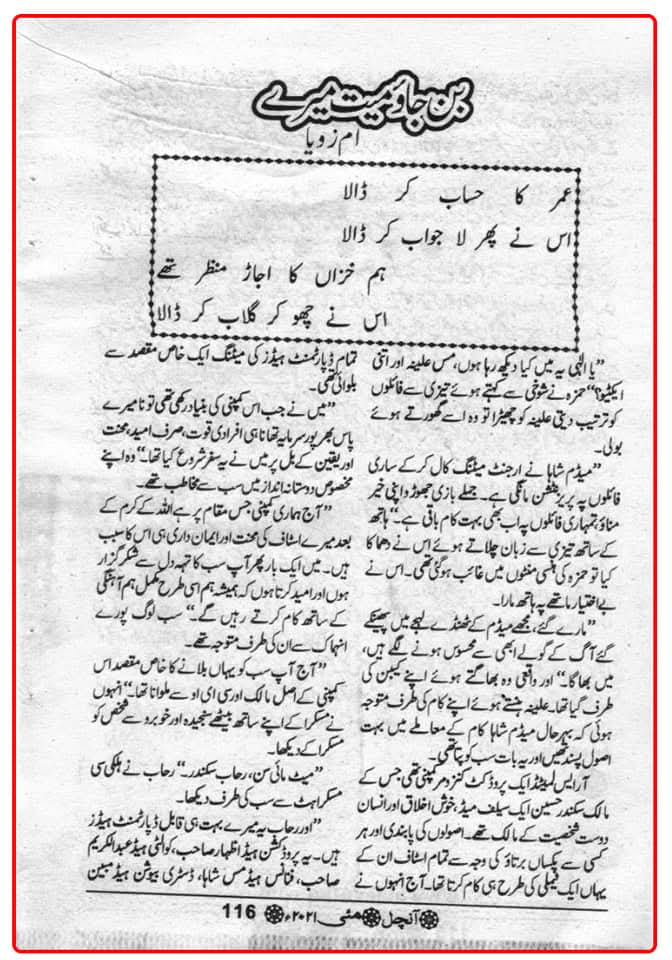 بن جاؤ میت میرے
ام زویا
عمر کا حساب کر ڈالا
اس نے پھر لا جواب کر ڈالا
ہم خزاں کا اجاڑ منظر تھے
اس نے چھو کر گلاب کر ڈالا
”یا الٰہی یہ میں کیا دیکھ رہا ہوں، مس علینہ اور اتنی
ایکٹیو؟“ حمزہ نے شوخی سے کہتے ہوئے تیزی سے فائلوں
کو ترتیب دیتی علینہ کو چھیڑا تو وہ اسے گھورتے ہوئے
بولی۔
”میڈم شاہا نے ارجنٹ میٹنگ کال کر کے ساری
فائلوں پہ پریزنٹیشن مانگی ہے۔ جملے بازی چھوڑو اپنی خیر
مناؤ تمہاری فائلوں پہ اب بھی بہت کام باقی ہے۔“ ہاتھ
کے ساتھ تیزی سے زبان چلاتے ہوئے اس نے دھماکا
کیا تو حمزہ کی ہنسی منٹوں میں غائب ہوگئی تھی۔ اس نے
بے اختیار ماتھے پہ ہاتھ مارا۔
”مارے گئے، مجھے میڈم کے ٹھنڈے لہجے میں پھینکے
گئے آگ کے گولے ابھی سے محسوس ہونے لگے ہیں،
میں بھاگا۔“ اور واقعی وہ بھاگتے ہوئے اپنے کیبن کی
طرف گیا تھا۔ علینہ ہنستے ہوئے اپنے کام کی طرف متوجہ
ہوئی کہ بہرحال میڈم شاہا کام کے معاملے میں بہت
اصول پسند تھیں اور یہ بات سب کو پتا تھی۔
آر ایس لمیٹڈ ایک پروڈکٹ کنزومر کمپنی تھی جس کے
مالک سکندر حسین ایک سیلف میڈ، خوش اخلاق اور انسان
دوست شخصیت کے مالک تھے۔ اصولوں کی پابندی اور ہر
کسی سے یکساں برتاؤ کی وجہ سے تمام اسٹاف ان کے
یہاں ایک فیملی کی طرح ہی کام کرتا تھا۔ آج انہوں نے
تمام ڈپارٹمنٹ ہیڈز کی میٹنگ ایک خاص مقصد سے
بلوائی تھی۔
”میں نے جب اس کمپنی کی بنیاد رکھی تھی تو نا میرے
پاس بھرپور سرمایہ تھا نا ہی افرادی قوت، صرف امید، محنت
اور یقین کے بل پر میں نے یہ سفر شروع کیا تھا۔“ وہ اپنے
مخصوص دوستانہ انداز میں سب سے مخاطب تھے۔
”آج ہماری کمپنی جس مقام پر ہے اللہ کے کرم کے
بعد میرے اسٹاف کی محنت اور ایمان داری ہی اس کا سبب
ہیں۔ میں ایک بار پھر آپ سب کا تہہ دل سے شکر گزار
ہوں اور امید کرتا ہوں کہ ہمیشہ ہم اسی طرح مکمل ہم آہنگی
کے ساتھ کام کرتے رہیں گے۔“ سب لوگ پورے
انہماک سے ان کی طرف متوجہ تھے۔
”آج آپ سب کو یہاں بلانے کا خاص مقصد اس
کمپنی کے اصل مالک اور سی ای او سے ملوانا تھا۔“ انہوں
نے مسکرا کے اپنے ساتھ بیٹھے سنجیدہ اور خوبرو سے شخص کو
مسکرا کے دیکھا۔
”میٹ مائی سن، رحاب سکندر۔“ رحاب نے ہلکی سی
مسکراہٹ سے سب کی طرف دیکھا۔
”اور رحاب یہ میرے بہت ہی قابل ڈپارٹمنٹ ہیڈز
ہیں۔ یہ پروڈکشن ہیڈ اظہار صاحب، کوالٹی ہیڈ عبدالکریم
صاحب، فنانس ہیڈ مس شاہا، ڈسٹری بیوشن ہیڈ مبین
آنچل مئی ۲۰۲۱ء 116